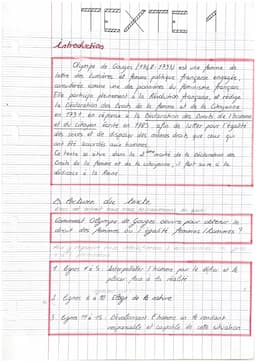 TEXTE 1
Introduction
Olympe de Gouges (1748-1793) est une femme de
lettre des Lumières et femme politique française engagée,
considérée comme une des pionnières du féminisme français.
Elle participe pleinement à la Révolution française, et rédige
la Déclaration des Droits de la femme et de la Citoyenne
en 1791, en réponse à la Déclaration des Droits de l'homme
et du citoyen écrite en 1789, afin de lutter pour l'égalité
des sexes et de disposer des mêmes droits que ceux qui
ont été accordés aux hommes.
Ce texte se situe dans la de la Déclaration des
Droits de la femme et de la citoyenne, il fait suite à la
dédicace à la Reine.
Lecture du texte
Comment Olympe de Gouges oeuvre pour obtenir le
droit des femmes ou l'égalité femmes/hommes ?
1. Lignes 1 à 5 : Interpeller l'homme pour le défier et le
placer face à sa réalité
2. Lignes 6 à 10 : Eloge de la nature
3. Lignes 11 à 15 : Dévalorisant l'homme en le rendant
responsable et coupable de cette situation